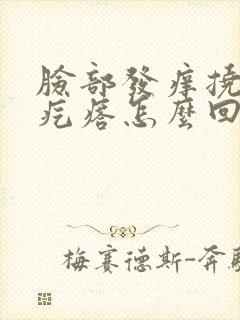 臉部發癢撓
疙瘩怎麼回
梅賽德斯-奔馳